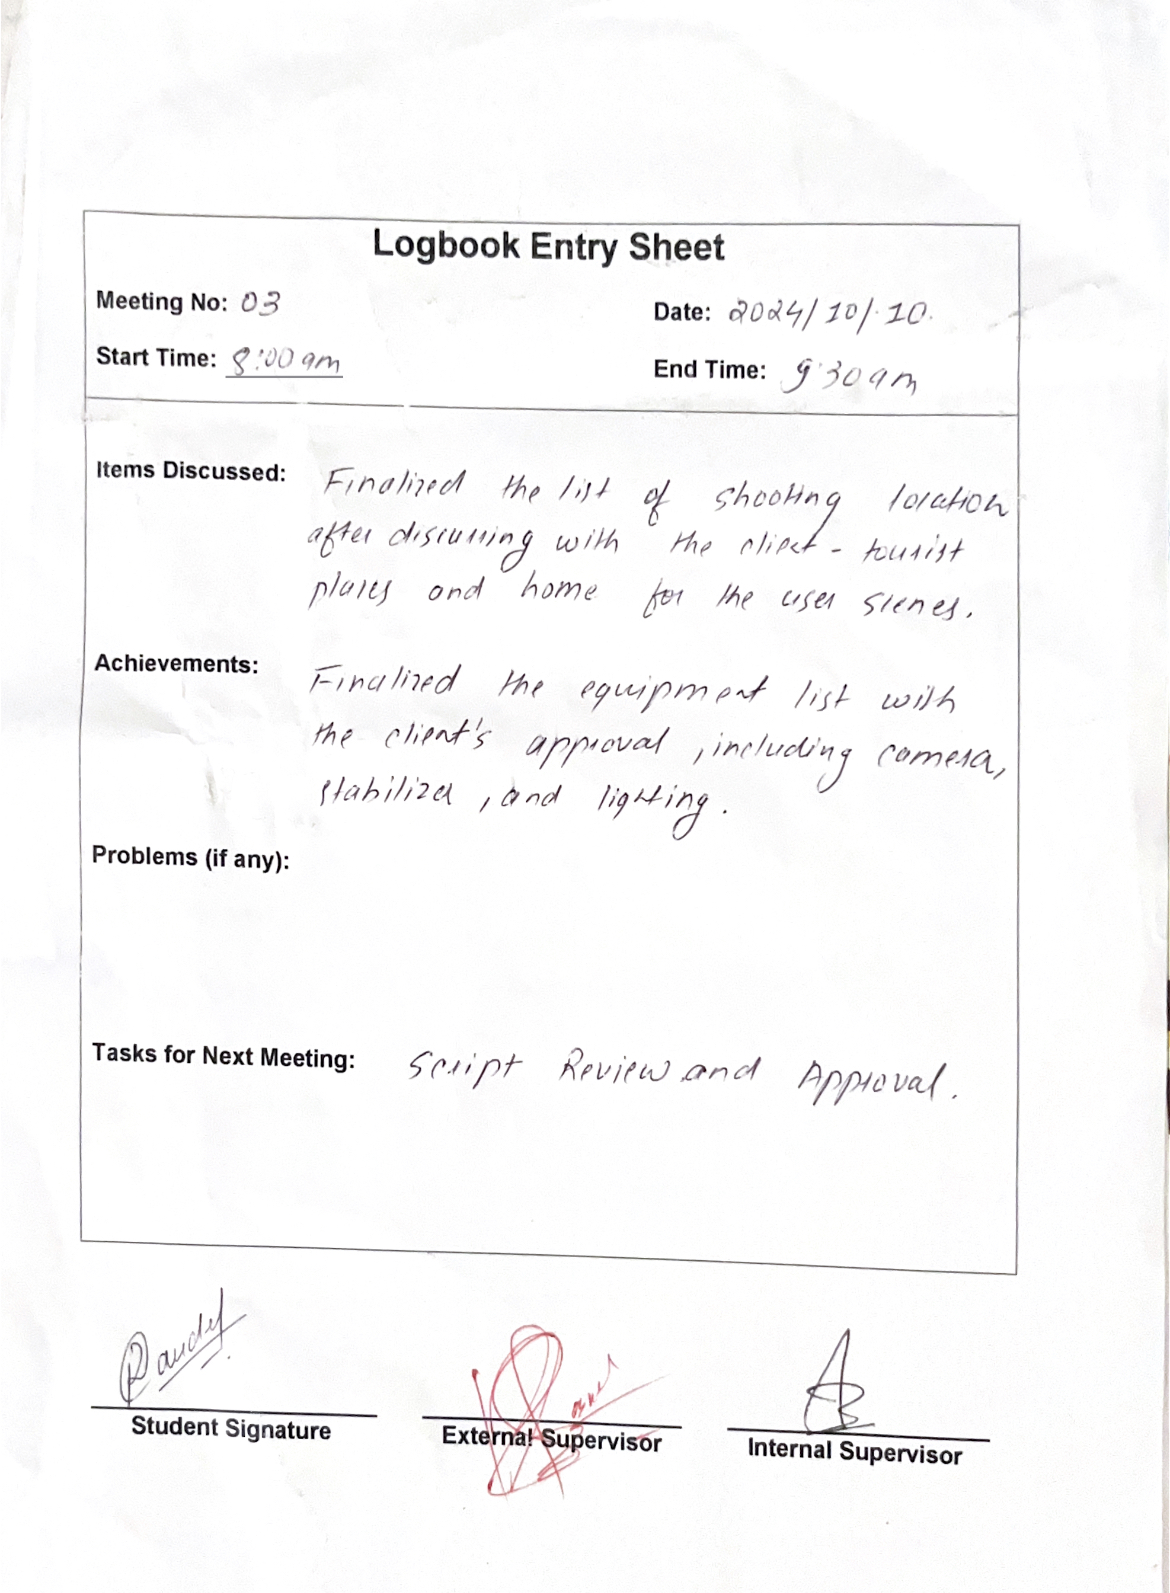 Logbook Entry Sheet
Meeting No: 03
Date: 2024/10/10.
Start Time: 8:00 am
End Time: 9:30 am
Items Discussed: Finalized the list of shooting location
after discussing with the client - tourist
places and home for the user scenes.
Achievements: Finalized the equipment list with
the client's approval, including camera,
stabilizer, and lighting.
Problems (if any):
Tasks for Next Meeting: Script Review and Approval.
Student Signature
External Supervisor
Internal Supervisor